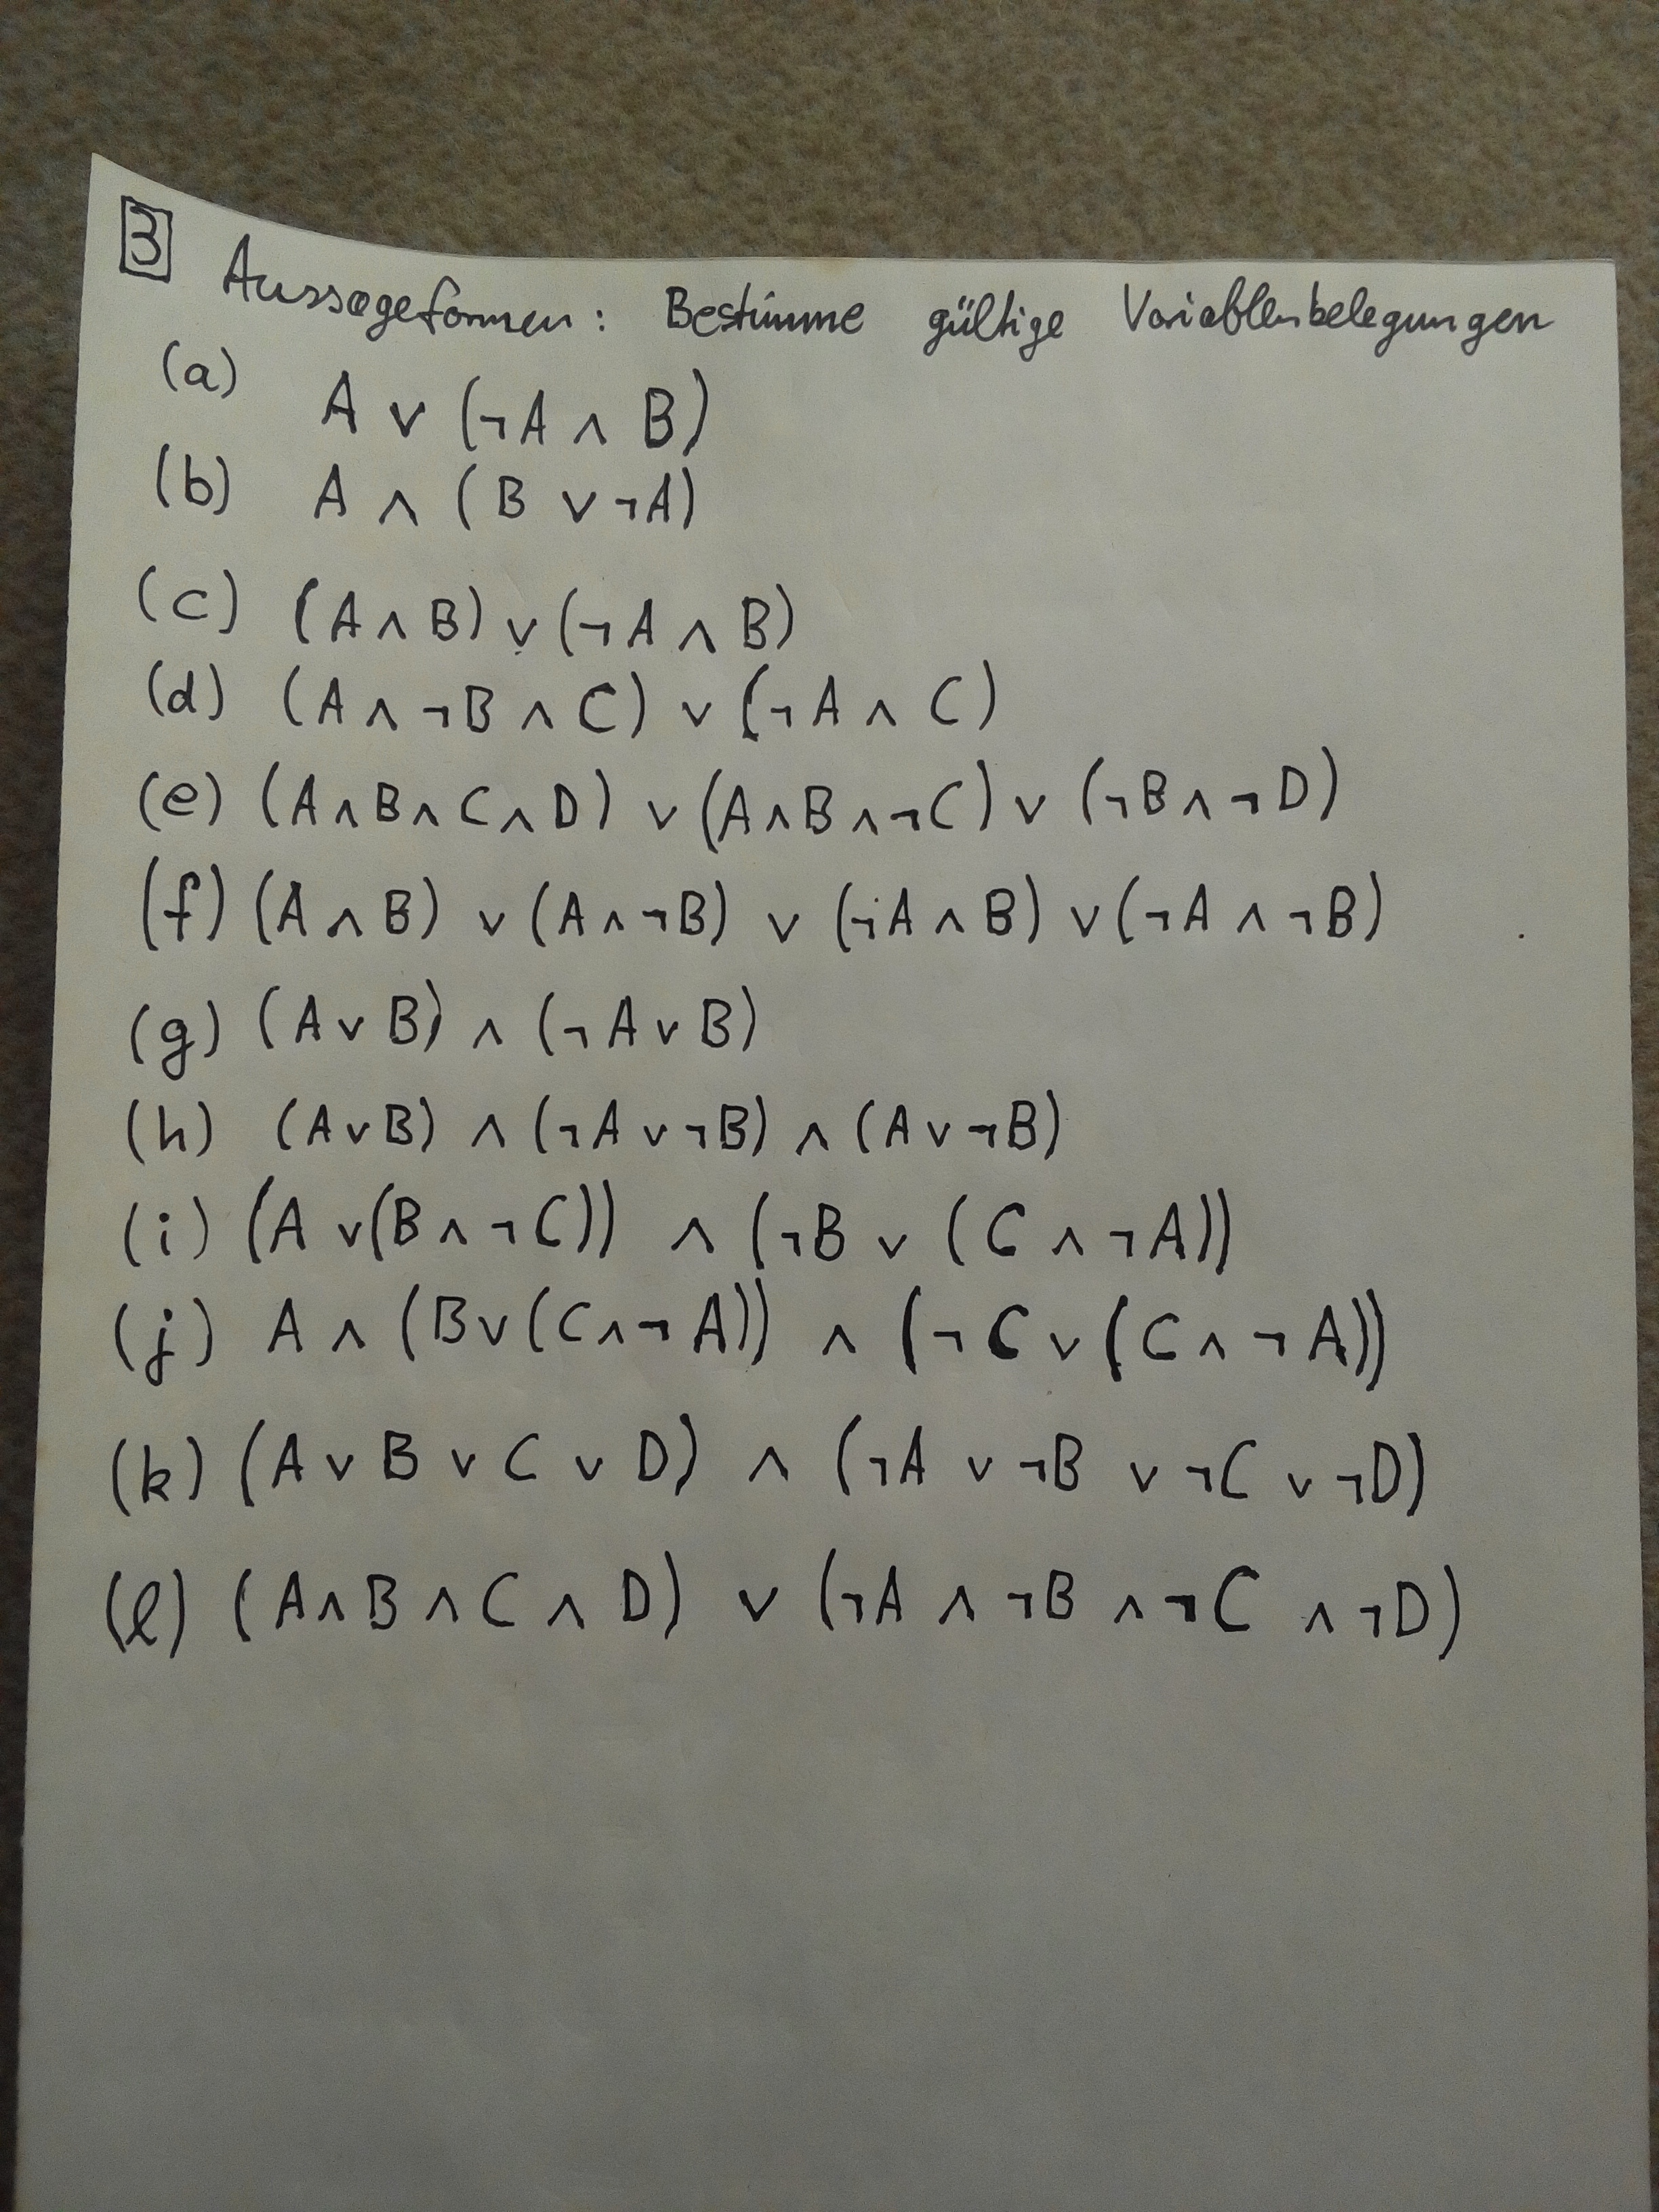 3 Aussageformen: Bestimme gültige Variablenbelegungen
(a) A ∨ (¬A ∧ B)
(b) A ∧ (B ∨ ¬A)
(c) (A ∧ B) ∨ (¬A ∧ B)
(d) (A ∧ ¬B ∧ C) ∨ (¬A ∧ C)
(e) (A ∧ B ∧ C ∧ D) ∨ (A ∧ B ∧ ¬C) ∨ (¬B ∧ ¬D)
(f) (A ∧ B) ∨ (A ∧ ¬B) ∨ (¬A ∧ B) ∨ (¬A ∧ ¬B)
(g) (A ∨ B) ∧ (¬A ∨ B)
(h) (A ∨ B) ∧ (¬A ∨ ¬B) ∧ (A ∨ ¬B)
(i) (A ∨ (B ∧ ¬C)) ∧ (¬B ∨ (C ∧ ¬A))
(j) A ∧ (B ∨ (C ∧ ¬A)) ∧ (¬C ∨ (C ∧ ¬A))
(k) (A ∨ B ∨ C ∨ D) ∧ (¬A ∨ ¬B ∨ ¬C ∨ ¬D)
(l) (A ∧ B ∧ C ∧ D) ∨ (¬A ∧ ¬B ∧ ¬C ∧ ¬D)